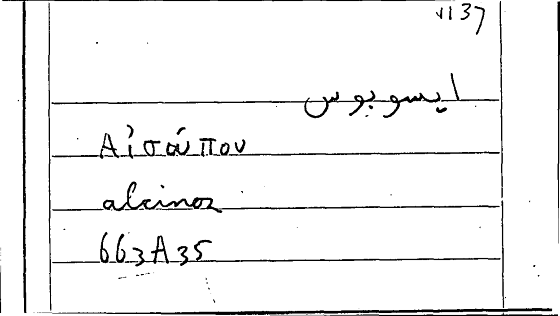 VI 37
ايسوبوس
Αἰσώπου
alcinoz
663A35